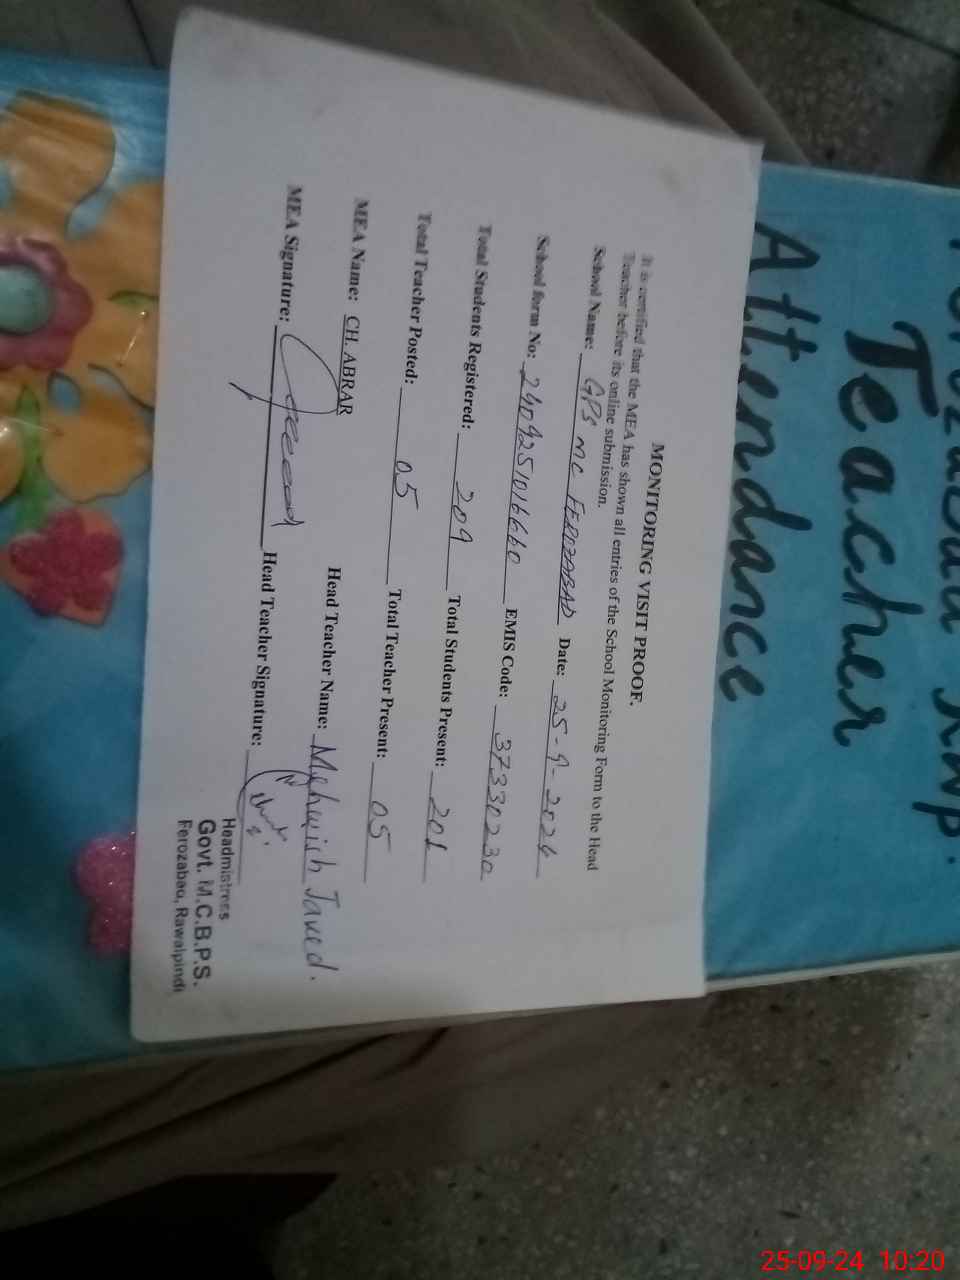 MONITORING VISIT PROOF.
It is certified that the MEA has shown all entries of the School Monitoring Form to the Head
Teacher before its online submission.
School Name: GPS MC FEROZABAD Date: 25-9-2024
School form No: 2409251016660 EMIS Code: 37330230
Total Students Registered: 209 Total Students Present: 201
Total Teacher Posted: 05 Total Teacher Present: 05
MEA Name: CH.ABRAR Head Teacher Name: Mehwish Javed.
MEA Signature: Head Teacher Signature:
Headmistress
Govt. M.C.B.P.S.
Ferozabad, Rawalpindi
Teacher
Attendance
25-09-24 10:20